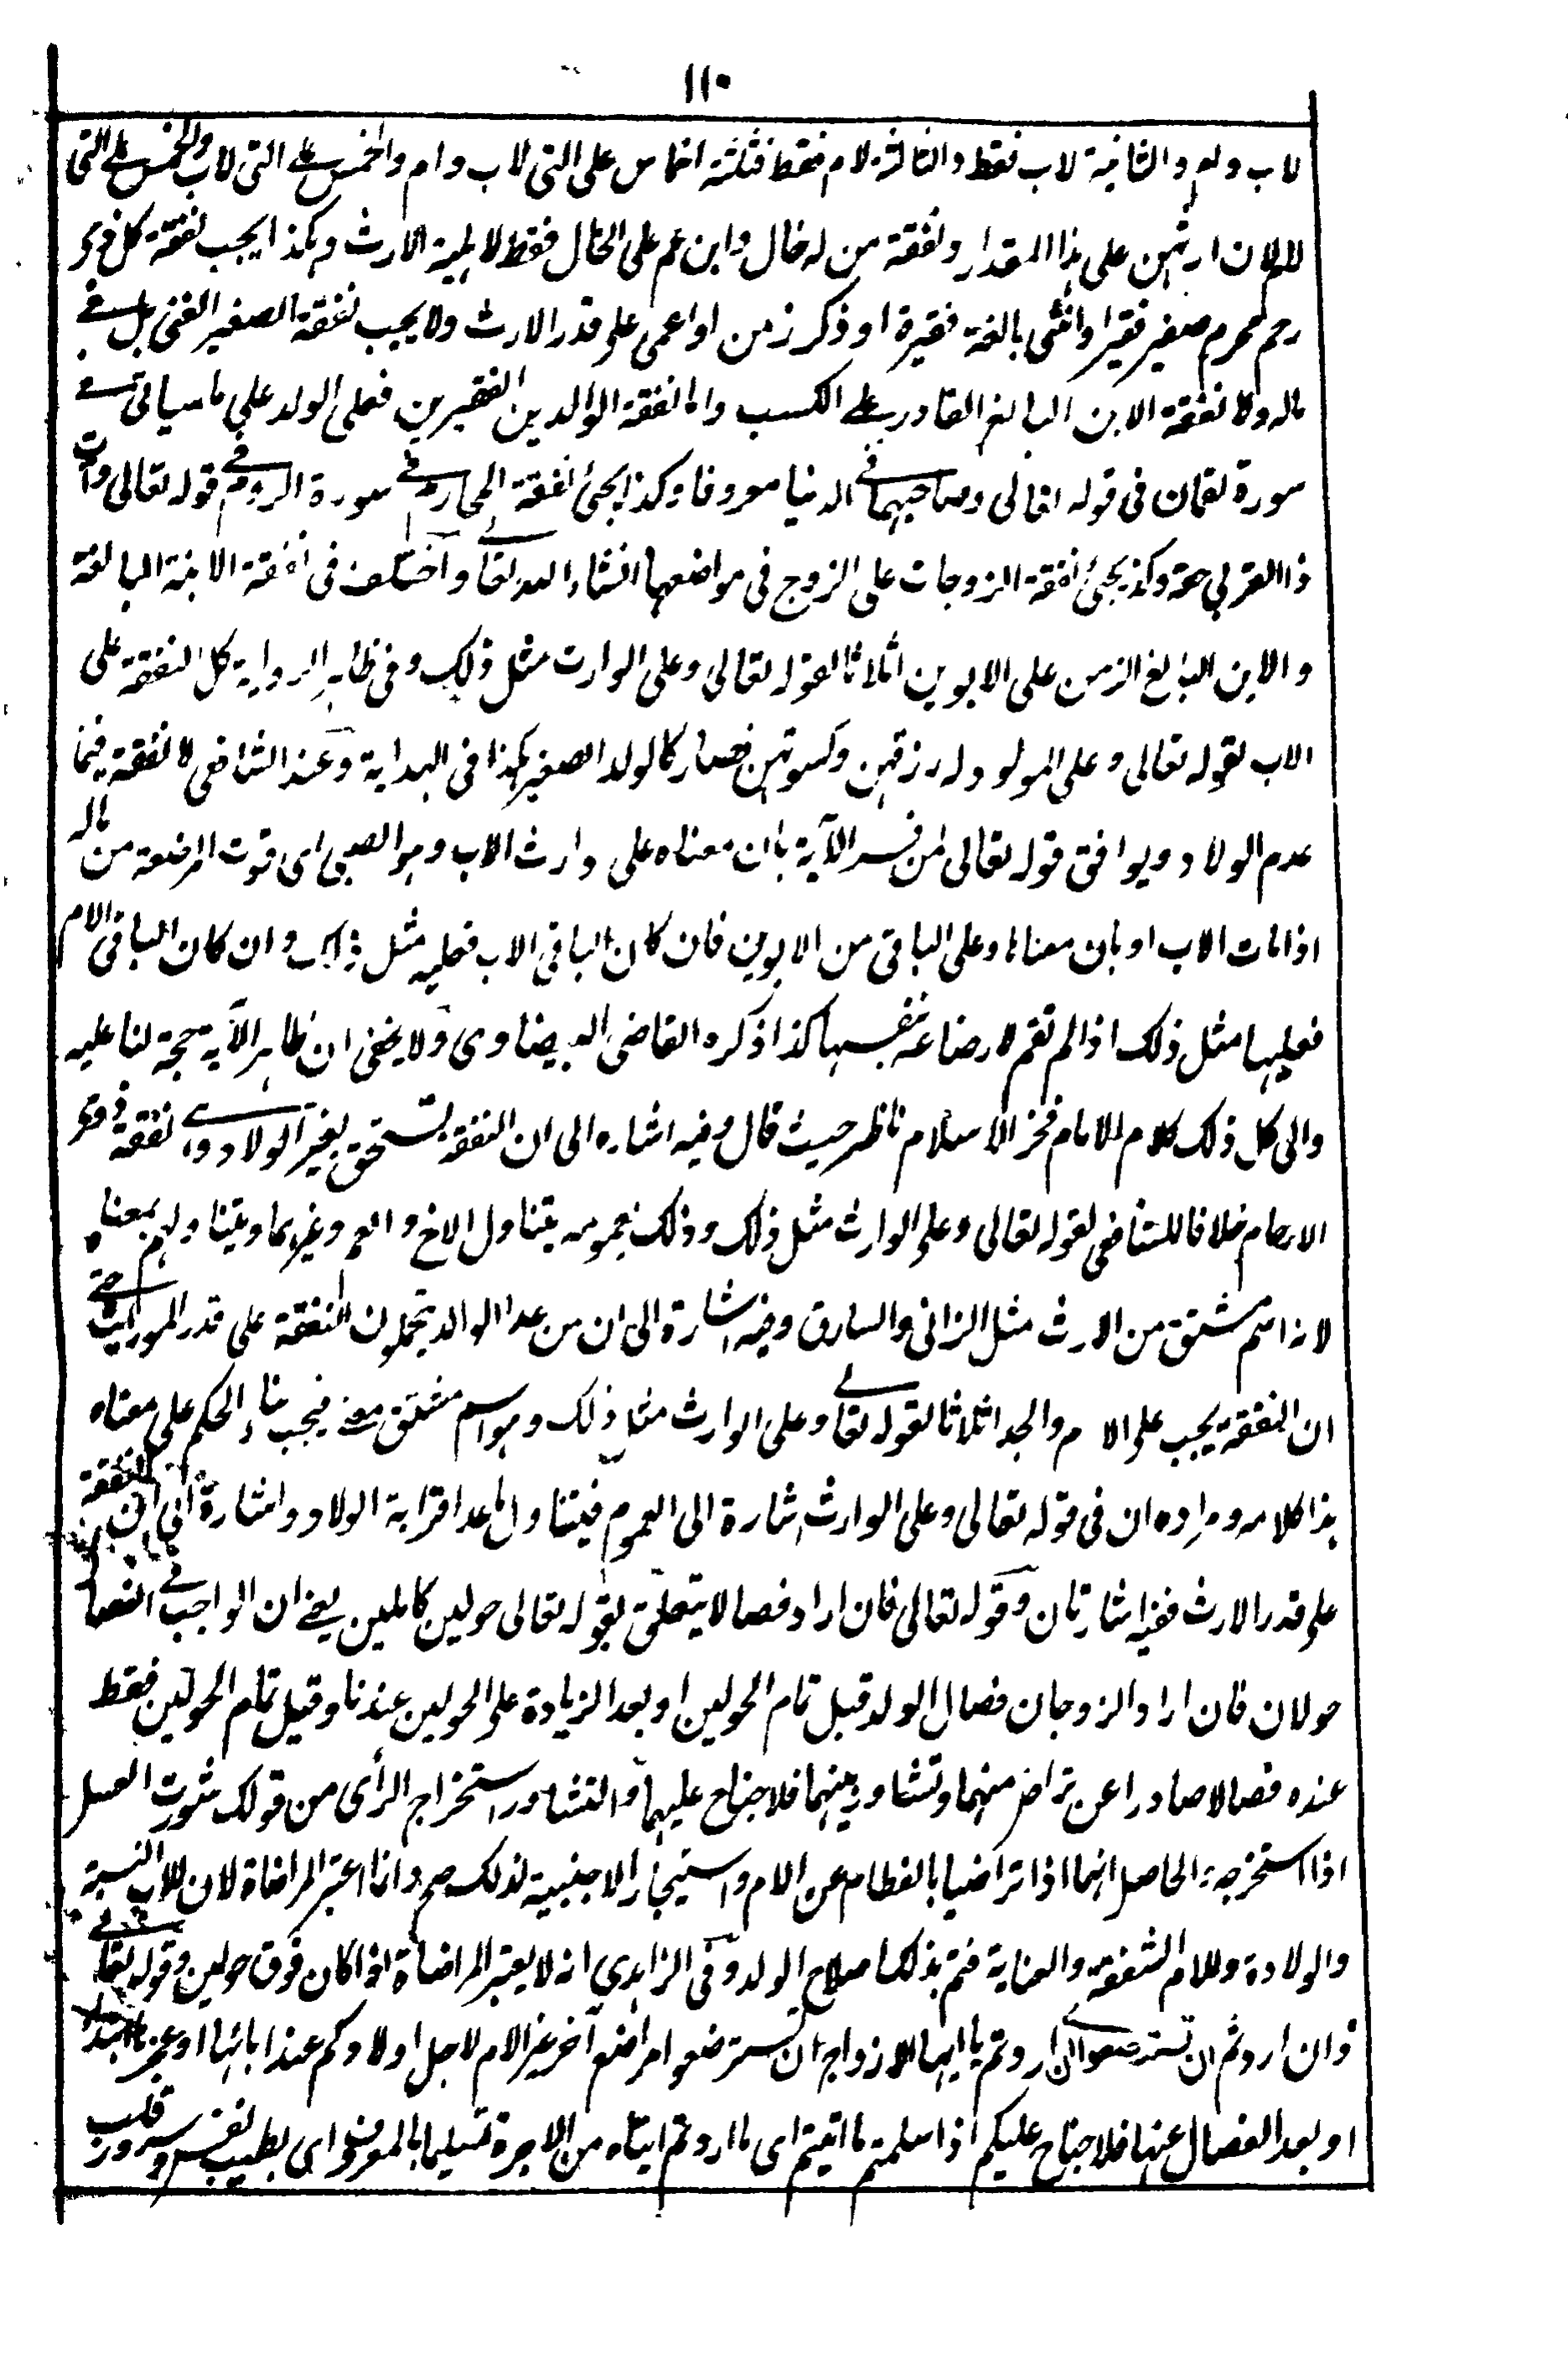 ١١٠
لاب وام والثانية لاب فقط والثالثة لام فقط فثلثة اخماس على التى لاب وام والخمس على التى لاب والخمس على التى
لام لان ارثهن على هذا المقدار ونفقة من له خال وابن عم على الخال فقط لاهلية الارث وهكذا يجب نفقة كل ذى
رحم محرم صغير فقيرا وانثى بالغة فقيرة او ذكر زمن او اعمى على قدر الارث ولا يجب نفقة الصغير الغنى بل فى
ماله ولا نفقة الابن البالغ القادر على الكسب واما نفقة الوالدين الفقيرين فعلى الولد على ما سياتى فى
سورة لقمان فى قوله تعالى وصاحبهما فى الدنيا معروفا وكذا يجئ نفقة المحارم فى سورة الروم فى قوله تعالى وآت
ذا القربى حقه وكذا يجئ نفقة الزوجات على الزوج فى مواضعها انشاء الله تعالى واختلف فى نفقة الابنة البالغة
والابن البالغ الزمن على الابوين اثلاثا لقوله تعالى وعلى الوارث مثل ذلك وفى ظاهر الرواية كل النفقة على
الاب لقوله تعالى وعلى المولود له رزقهن وكسوتهن فصار كالولد الصغير هكذا فى الهداية وعند الشافعى لا نفقة فيما
عدم الولاد ويوافق قوله تعالى من فسر الآية بان معناه على وارث الاب وهو الصبى اى قوت المرضعة من ماله
اذا مات الاب او بان معناها وعلى الباقى من الابوين فان كان الباقى الاب فعليه مثل ذلك وان كان الباقى الام
فعليها مثل ذلك اذا لم تقم لارضاعه بنفسها كذا ذكره القاضى البيضاوى ولا يخفى ان ظاهر الآية حجة لنا عليه
والى كل ذلك كلام الامام فخر الاسلام ناظر حيث قال وفيه اشاره الى ان النفقة يستحق بغير الولاد وهى نفقة ذوى
الارحام خلافا للشافعى لقوله تعالى وعلى الوارث مثل ذلك وذلك بعمومه يتناول الاخ والعم وغيرهما ويتناولهم بمعناه
لانه اسم مشتق من الارث مثل الزانى والسارق وفيه اشارة الى ان من عدا الوالد يتحملون النفقة على قدر المواريث حتى
ان النفقة يجب على الام والجد اثلاثا لقوله تعالى وعلى الوارث مثل ذلك وهو اسم مشتق من معنى فيجب بناء الحكم على معناه
هذا كلامه ومراده ان فى قوله تعالى وعلى الوارث اشارة الى العموم فيتناول ما عدا قرابة الولاد واشارة الى ان النفقة
على قدر الارث ففيه اشارتان وقوله تعالى فان ارادا فصالا يتعلق بقوله تعالى حولين كاملين يعنى ان الواجب فى الفصال
حولان فان اراد الزوجان فصال الولد قبل تمام الحولين او بعد الزيادة على الحولين عندنا وقبل تمام الحولين فقط
عنده فصالا صادرا عن تراض منهما وتشاور بينهما فلا جناح عليهما والتشاور استخراج الرأى من قولك شورت العسل
اذا استخرجته الحاصل انهما اذا تراضيا بالفطام عن الام واستيجار الاجنبية لذلك صح وانما اعتبر المراضاة لان للاب النسبة
والولادة وللام الشفقة والعناية فتم بذلك صلاح الولد وفى الزاهدى انه لا يعتبر المراضاة اذا كان فوق حولين وقوله تعالى
وان اردتم ان تسترضعوا ان اردتم يا ايها الازواج ان تسترضعوا مراضع آخر غير الام لاجل اولادكم عند ابائها او عجزها ابتداء
او بعد الفصال عنها فلا جناح عليكم اذا سلمتم ما اتيتم اى ما اردتم ايتاه من الاجرة تسليما بالمعروف اى بطيب نفس وسرور قلب